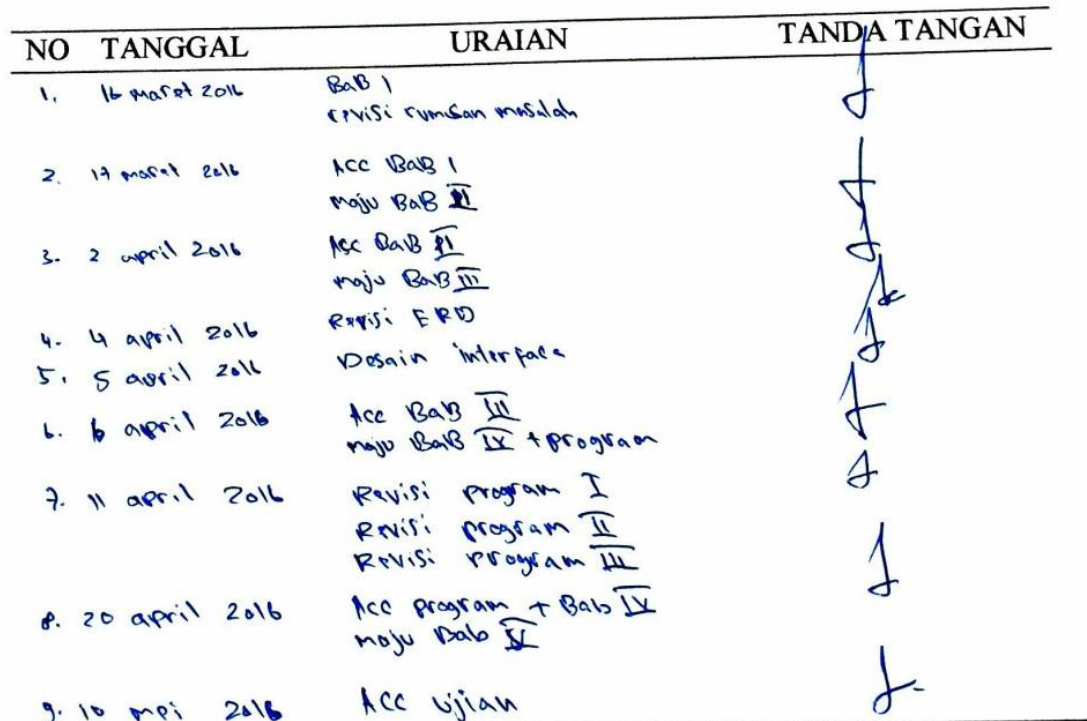 NO TANGGAL URAIAN TANDA TANGAN
1. 16 maret 2016 BaB 1
revisi rumusan masalah
2. 17 maret 2016 Acc BaB 1
maju BaB II
3. 2 april 2016 Acc BaB II
maju BaB III
4. 4 april 2016 Revisi ERD
5. 5 april 2016 Desain interface
6. 6 april 2016 Acc BaB III
maju BaB IV + program
7. 11 april 2016 Revisi program I
Revisi program II
Revisi program III
8. 20 april 2016 Acc program + Bab IV
maju Bab V
9. 10 mei 2016 Acc ujian